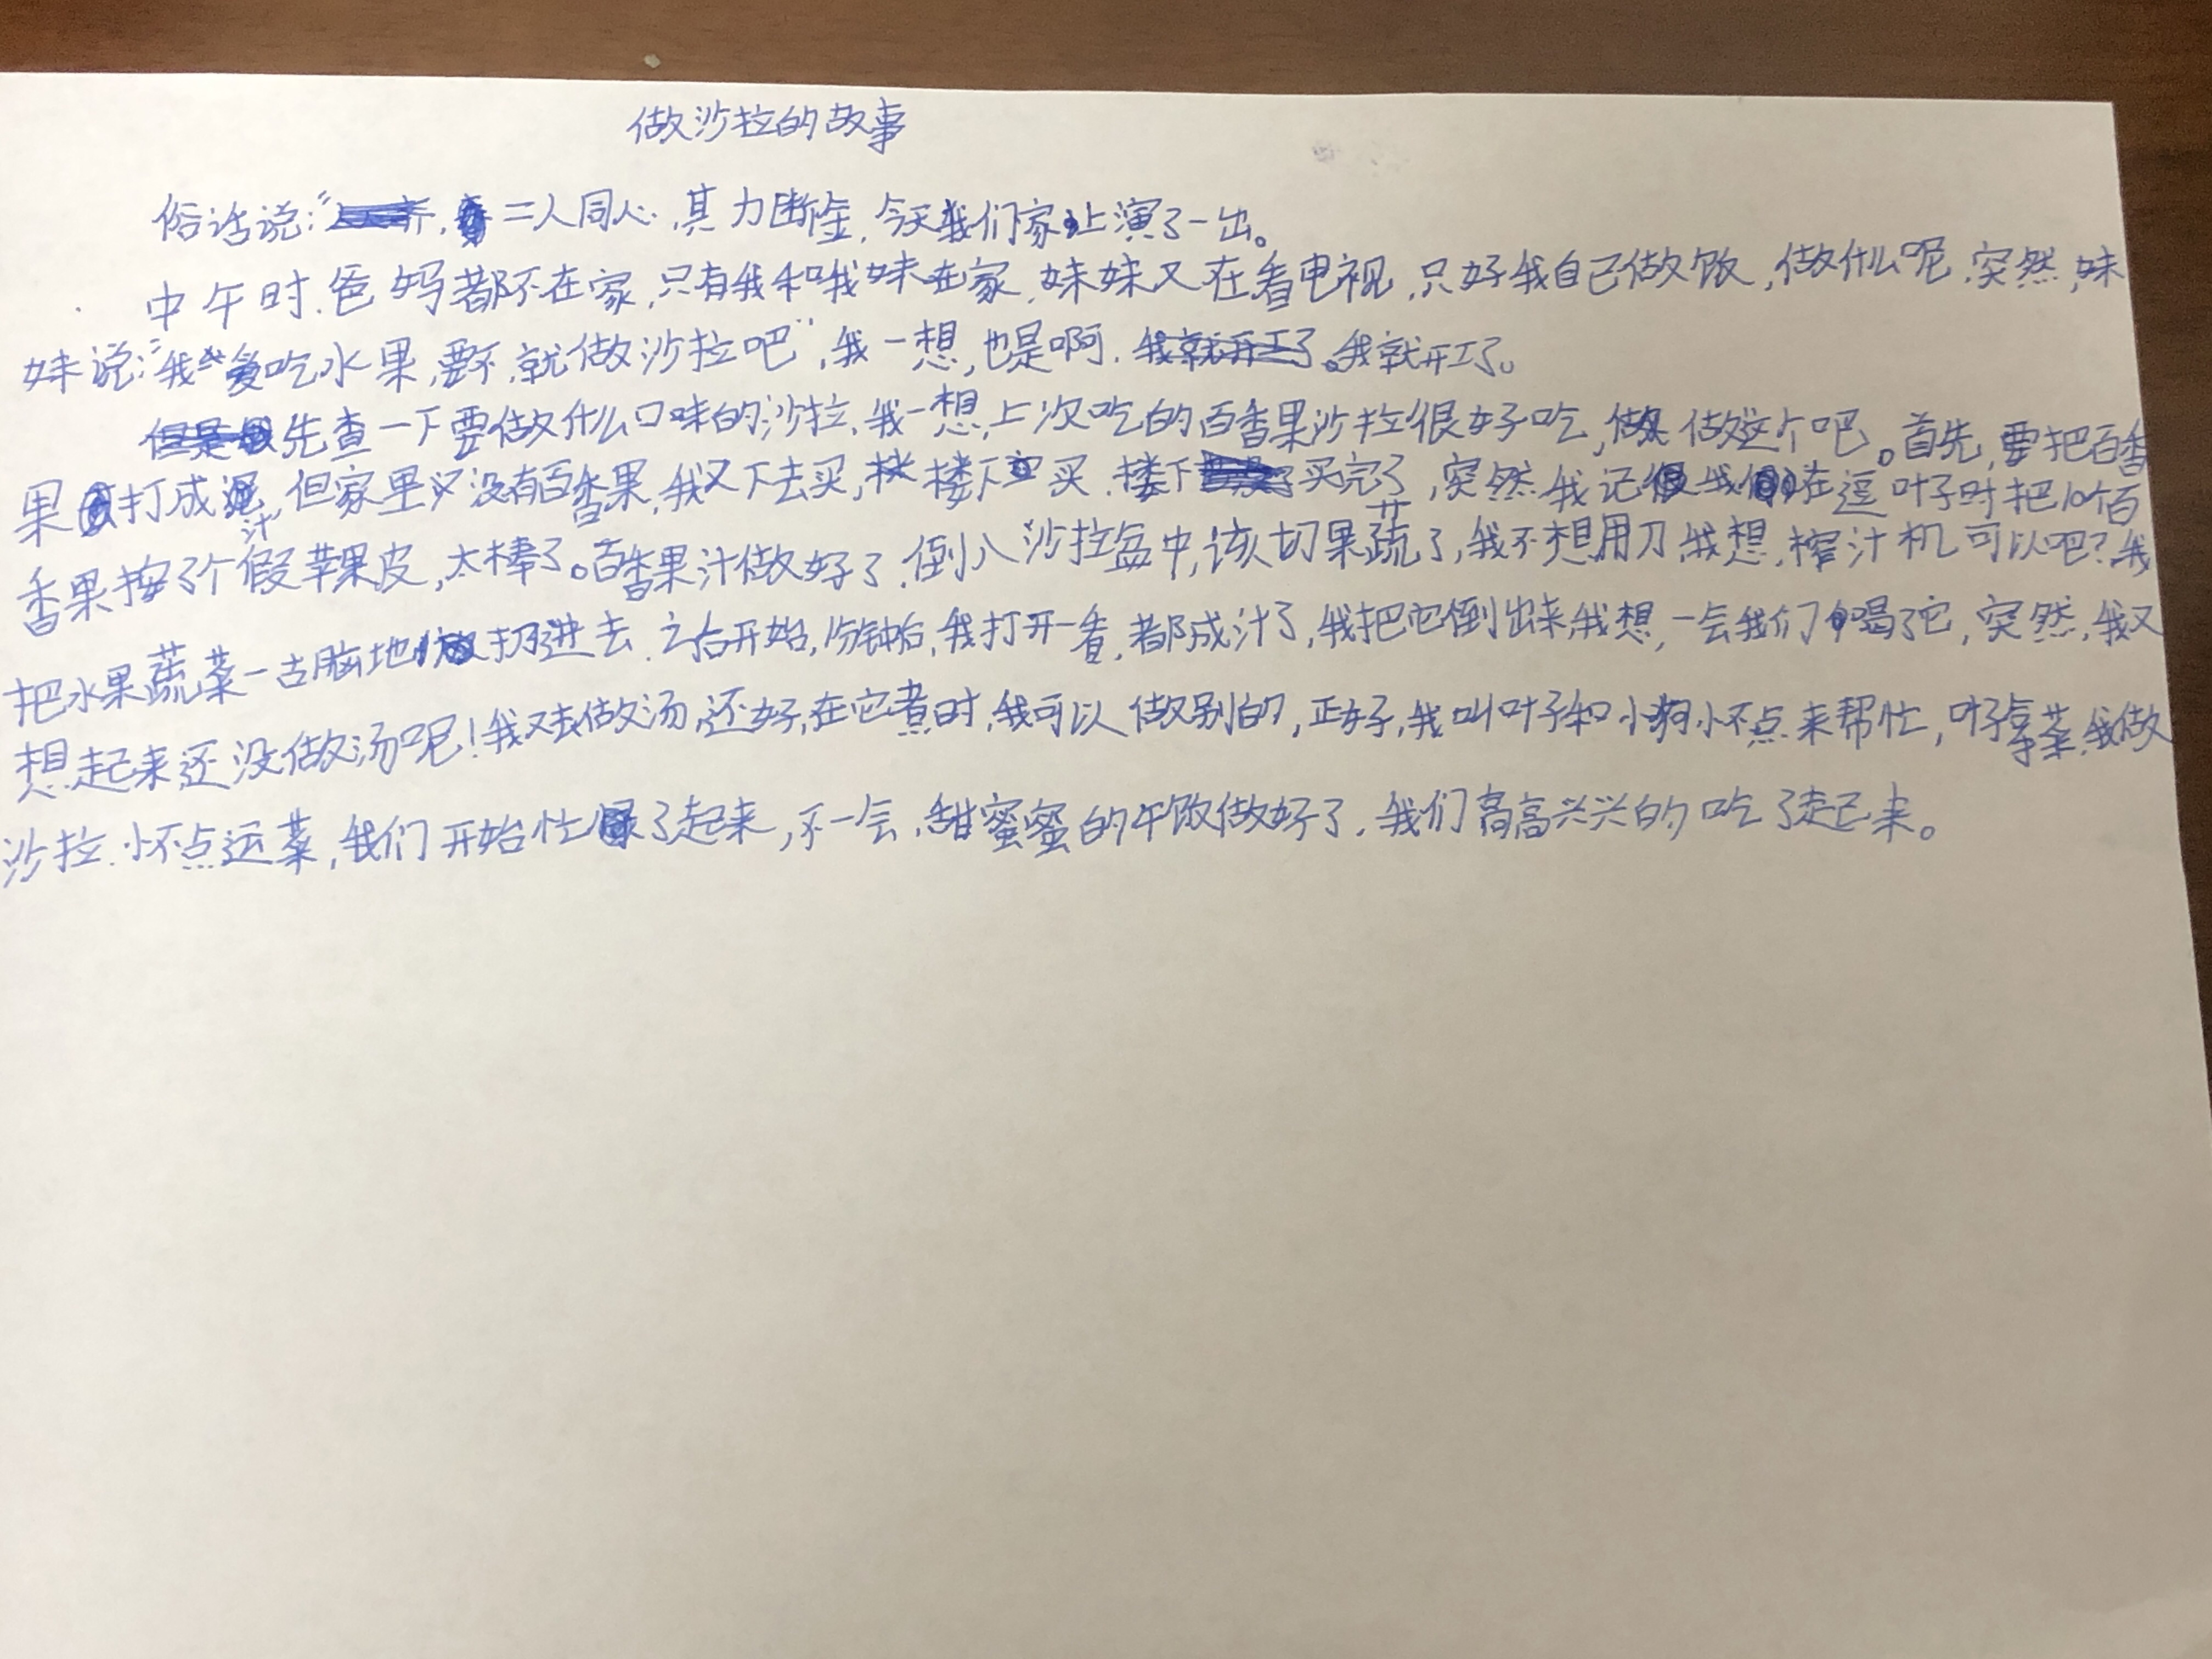 做沙拉的故事
俗话说:“二人同心,其力断金,今天我们家上演了一出。
中午时,爸妈都不在家,只有我和我妹在家,妹妹又在看电视,只好我自己做饭,做什么呢,突然,妹
妹说:“我爱吃水果,要不,就做沙拉吧”,我一想,也是啊,我就开工了。
先查一下要做什么口味的沙拉,我一想,上次吃的百香果沙拉很好吃,做这个吧。首先,要把百香
果打成汁,但家里又没有百香果,我又下去买,楼下买,楼下买完了,突然我记在逗叶子时把10个百
香果按了个假苹果皮,太棒了。百香果汁做好了,倒入沙拉盆中,该切果蔬了,我不想用刀,我想,榨汁机可以吧?我
把水果蔬菜一古脑地扔进去,之后开始,1分钟后,我打开一看,都成汁了,我把它倒出来,我想,一会我们喝了它,突然,我又
想起来还没做汤呢!我又去做汤,还好,在它煮时,我可以做别的,正好,我叫叶子和小狗小不点来帮忙,叶子拿菜,我做
沙拉,小不点运菜,我们开始忙了起来,不一会,甜蜜蜜的午饭做好了,我们高高兴兴的吃了起来。